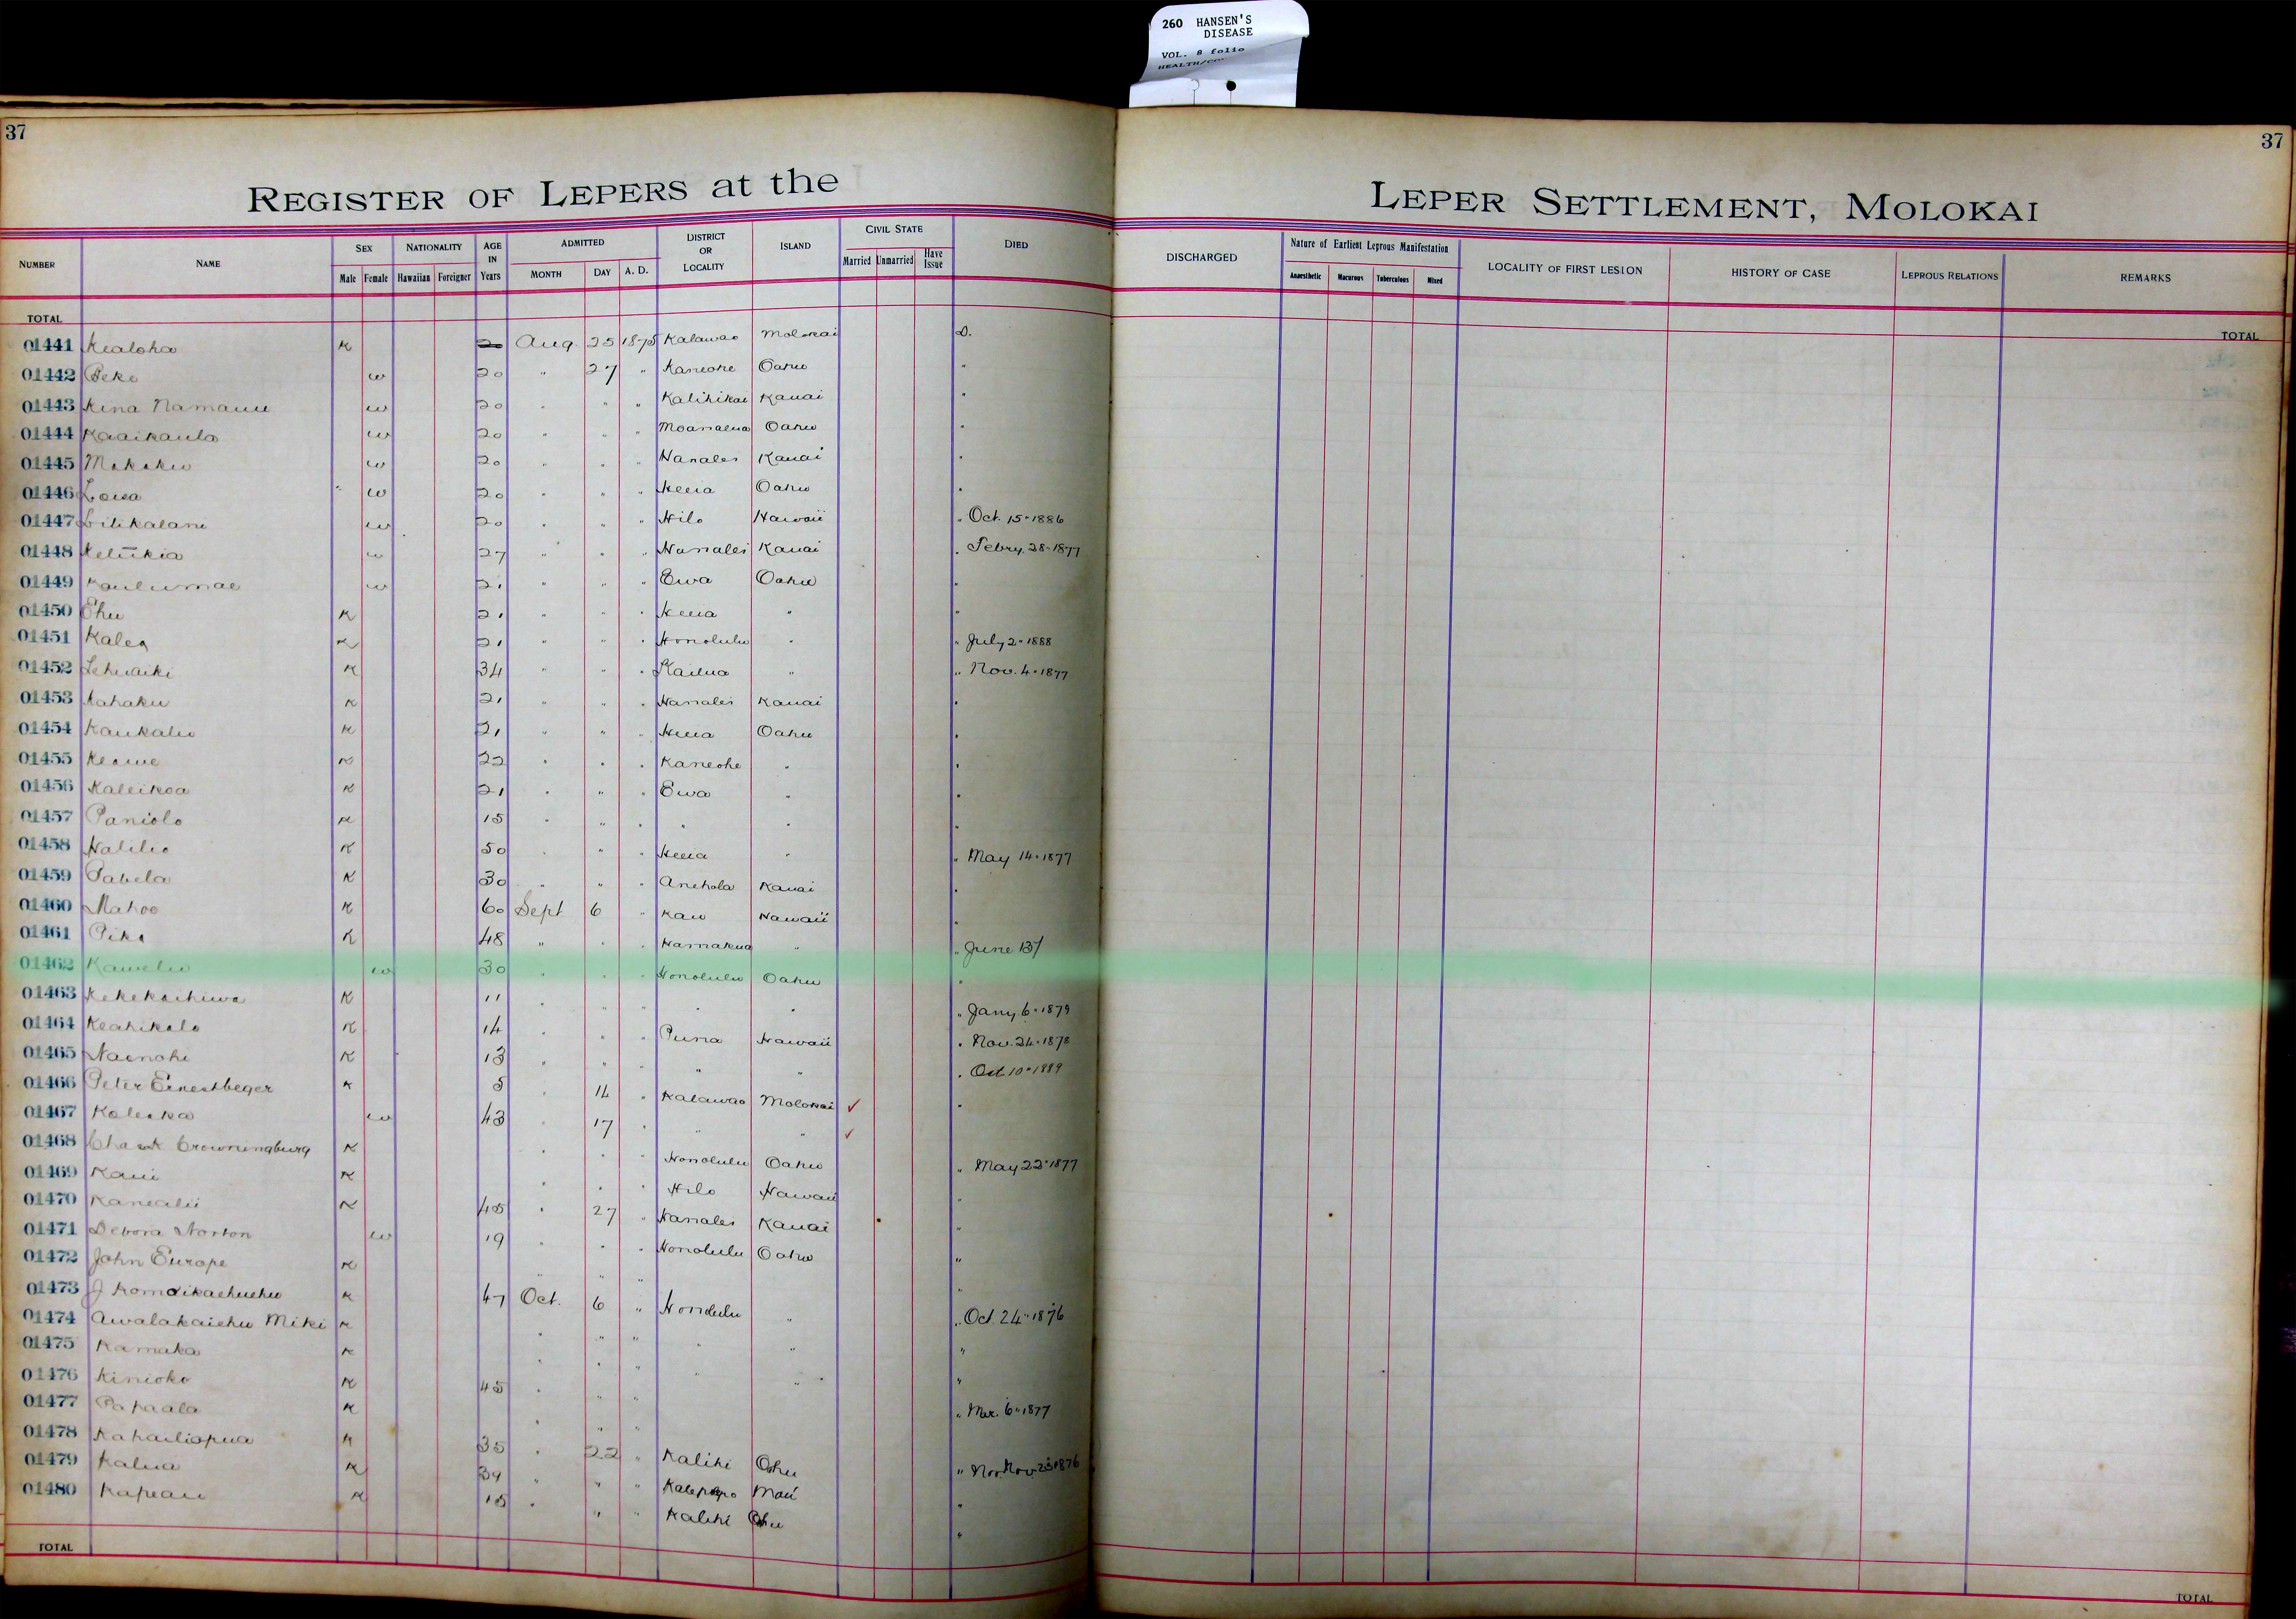 260 HANSEN'S
DISEASE
VOL. 8 folio
37
37
REGISTER OF LEPERS at the LEPER SETTLEMENT, MOLOKAI
NUMBER NAME SEX Male Female NATIONALITY Hawaiian Foreigner AGE IN Years ADMITTED MONTH DAY A. D. DISTRICT OR LOCALITY ISLAND CIVIL STATE Married Unmarried Have Issue DIED DISCHARGED Nature of Earliest Leprous Manifestation Anaesthetic Macurous Tuberculous Mixed LOCALITY OF FIRST LESION HISTORY OF CASE LEPROUS RELATIONS REMARKS
TOTAL TOTAL
01441 Kealoha K 20 Aug. 25 1875 Kalawao Molokai D.
01442 Peke w 20 " 27 " Kaneohe Oahu "
01443 Kina Namauu w 20 " " " Kalihikai Kauai "
01444 Kaaikaula w 20 " " " Moanalua Oahu "
01445 Makaku w 20 " " " Hanalei Kauai "
01446 Loisa w 20 " " " Heeia Oahu "
01447 Lilikalani w 20 " " " Hilo Hawaii " Oct. 15-1886
01448 Keliikia w 27 " " " Hanalei Kauai " Febry. 28-1877
01449 Kaulumae w 21 " " " Ewa Oahu "
01450 Ehu K 21 " " " Heeia " "
01451 Kalea K 21 " " " Honolulu " " July 2-1888
01452 Lehuaiki K 34 " " " Kailua " " Nov. 4-1877
01453 Kahaku K 21 " " " Hanalei Kauai "
01454 Kaukaliu K 21 " " " Heeia Oahu "
01455 Keawe K 22 " " " Kaneohe " "
01456 Kaleikoa K 21 " " " Ewa " "
01457 Paniolo K 15 " " " " " "
01458 Halilio K 50 " " " Heeia " " May 14-1877
01459 Pabela K 30 " " " Anehola Kauai "
01460 Mahoe K 60 Sept 6 " Kau Hawaii "
01461 Pika K 48 " " " Hamakua " " June 13/
01462 Kawelu w 30 " " " Honolulu Oahu "
01463 Kekekaihiwa K 11 " " " " " " Jany. 6-1879
01464 Keahikalo K 14 " " " Puna Hawaii " Nov. 24-1878
01465 Nainohi K 13 " " " " " " Oct 10-1889
01466 Peter Ernestbeger K 5 " 14 " Kalawao Molokai ✓ "
01467 Kaleika w 43 " 17 " " " ✓
01468 Crowningburg K " " " Honolulu Oahu " May 22-1877
01469 Kaui K " " " Hilo Hawaii "
01470 Kanealii K 45 " 27 " Hanalei Kauai "
01471 Debora Norton w 19 " " " Honolulu Oahu "
01472 John Europe K " " " "
01473 J Komoikaehuehu K 47 Oct. 6 " Honolulu " " Oct. 24-1876
01474 Awalakaiehu Miki K " " " " " "
01475 Kamaka K " " " " " "
01476 Kinioko K 45 " " " Mar. 6-1877
01477 Papaala K " " "
01478 Kahailiopua K 35 " 22 " Kalihi Oahu " Nov. 25 1876
01479 Kalua K 39 " " " Kalepolepo Maui "
01480 Kapeau K 15 " " " Kalihi Oahu "
TOTAL TOTAL